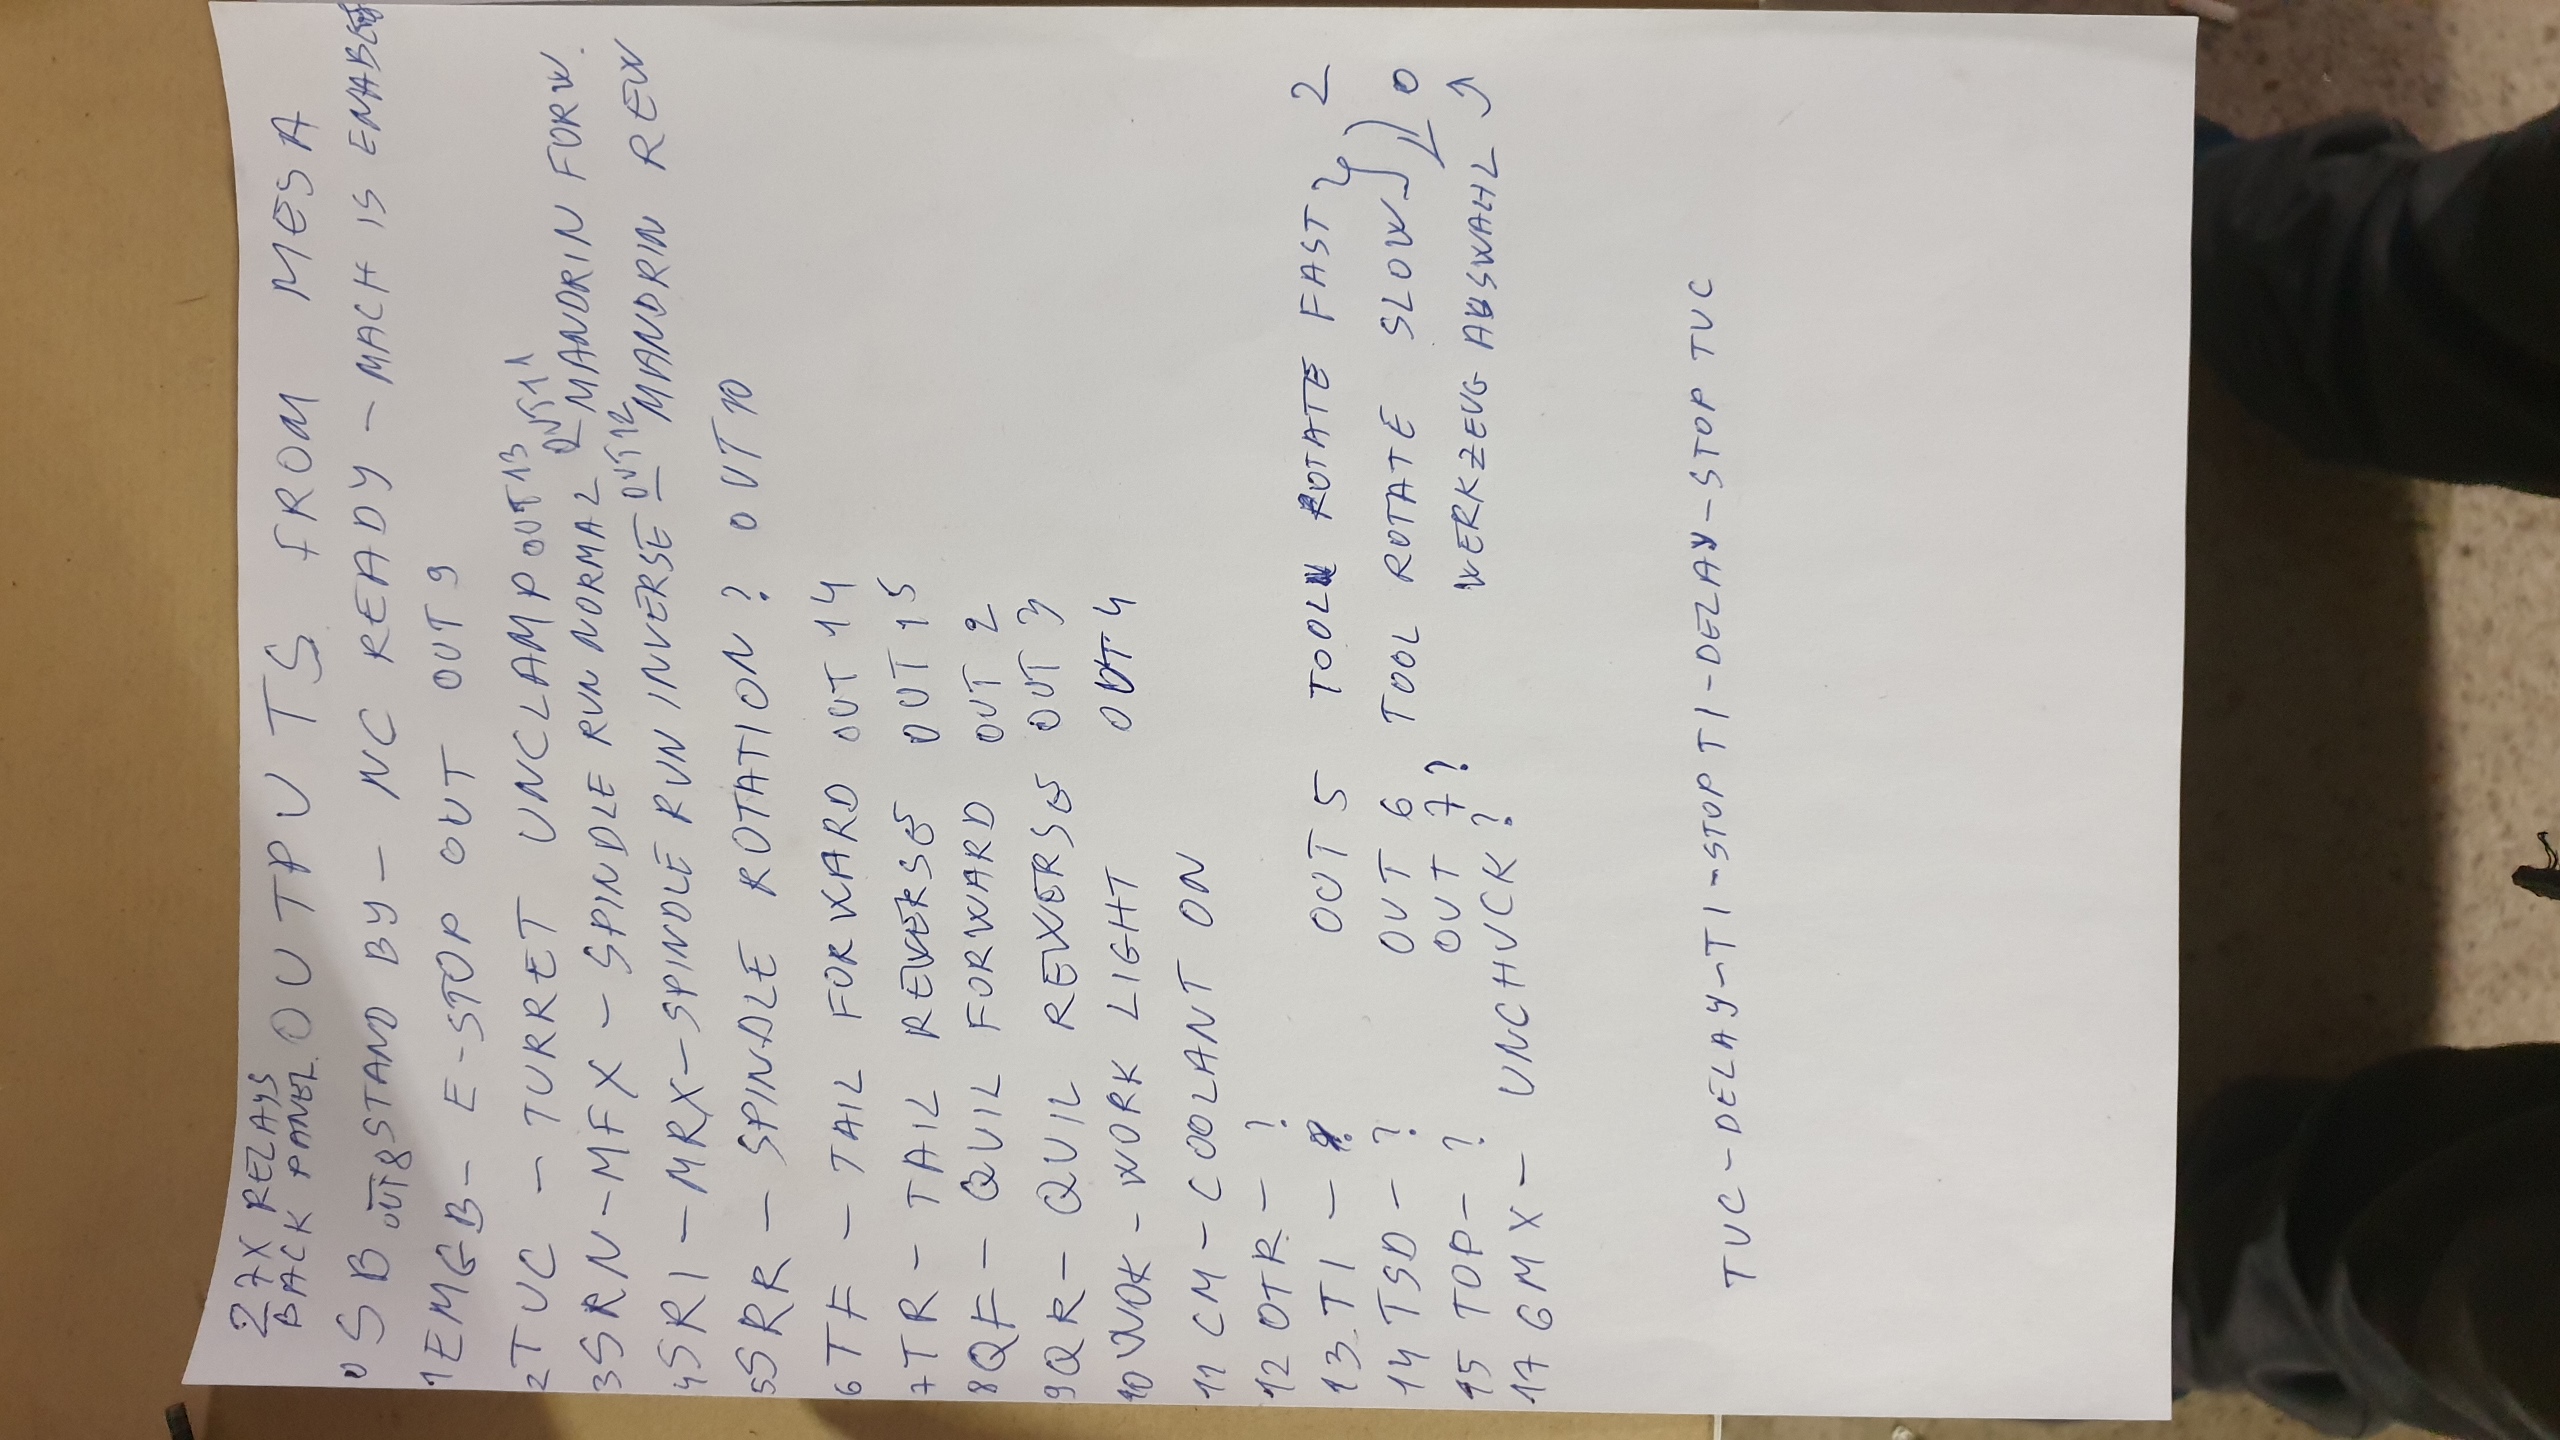 27X RELAYS
BACK PANEL OUTPUTS FROM MESA
0 SB OUT8 STAND BY - NC READY - MACH IS ENABLED
1 EMGB - E-STOP OUT OUT 9
2 TUC - TURRET UNCLAMP OUT13
3 SRN-MFX - SPINDLE RUN NORMAL OUT11 MANDRIN FORW.
4 SRI - MRX - SPINDLE RUN INVERSE OUT12 MANDRIN REW
5 SRR - SPINDLE ROTATION? OUT 10
6 TF - TAIL FORWARD OUT 14
7 TR - TAIL REVERSE OUT 15
8 QF - QUIL FORWARD OUT 2
9 QR - QUIL REWERSE OUT 3
10 WOK - WORK LIGHT OUT 4
11 CM - COOLANT ON
12 OTR - ?
13. TI - ? OUT 5 TOOL ROTATE FAST } 2
14 TSD - ? OUT 6 TOOL ROTATE SLOW 0
15 TOP - ? OUT 7? WERKZEUG AUSWAHL
17 GMX - UNCHUCK?
TUC - DELAY - TI - STOP TI - DELAY - STOP TUC